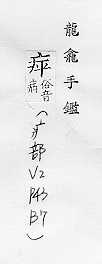 龍龕手鑑
俗音
病
(疒部
V2
P43
B7)